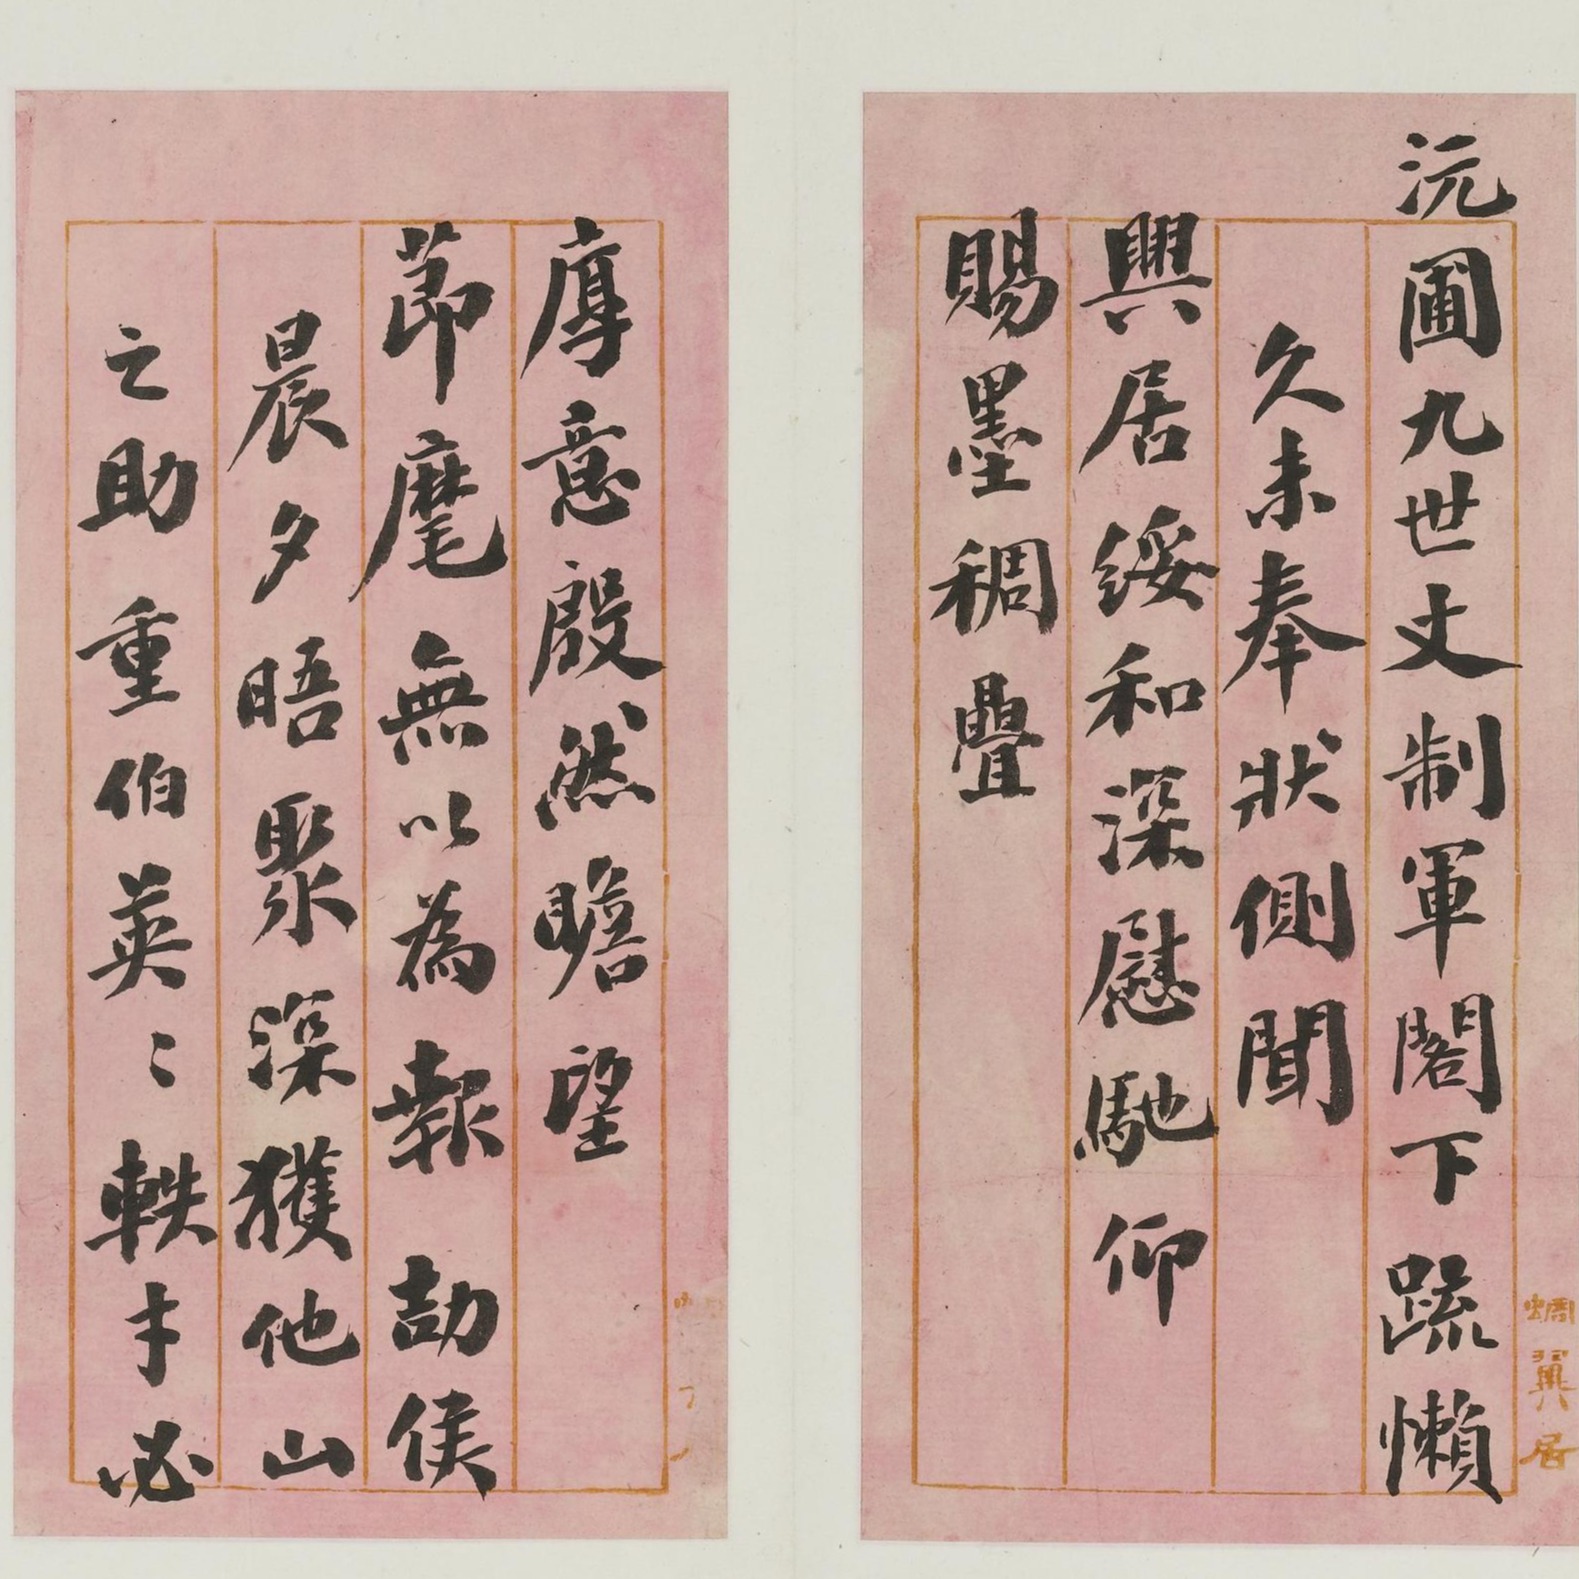 沅圃九世丈制軍閣下疏懶
久未奉狀側聞
興居綏和深慰馳仰
賜墨稠疊
厚意殷然瞻望
節麾無以為報劼侯
晨夕晤聚深獲他山
之助重伯英〻軼才必
蜩翼居